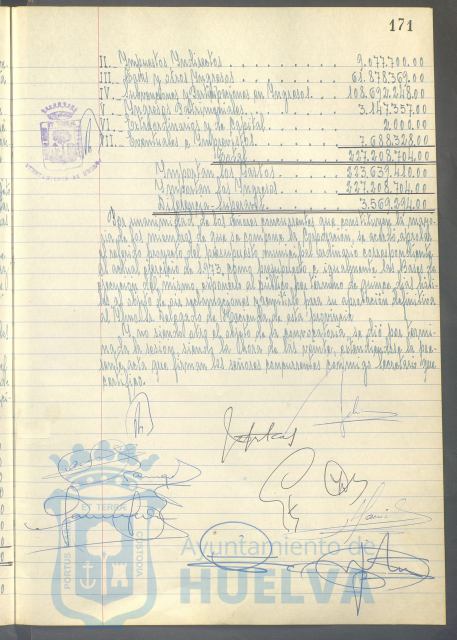 171
II.- Impuestos Indirectos . . . . . . . . . . 9.077.700.00
III.- Tasas y otros Ingresos . . . . . . . . . . 61.878.369.00
IV.- Subvenciones y Participaciones en Ingresos . . . 108.692.248.00
V.- Ingresos Patrimoniales . . . . . . . . . . 3.147.357.00
VI.- Extraordinarios y de Capital . . . . . . . . 2.000.00
VII.- Eventuales e Imprevistos . . . . . . . . 7.688.328.00
Total . . . . . . . . 227.208.704.00
Importan los Gastos . . . . . . . . 223.639.410.00
Importan los Ingresos . . . . . . . . 227.208.704.00
Diferencia-Superávit . . . . . . . . 3.569.294.00
Por unanimidad de los señores concurrentes que constituyen la mayo-
ría de los miembros de que se compone la Corporación, se acordó aprobar
el referido proyecto del presupuesto municipal ordinario correspondiente
al actual ejercicio de 1973, como presupuesto e igualmente las Bases de
ejecución del mismo, exponerla al público, por término de quince días hábi-
les al objeto de oír reclamaciones y remitirle para su aprobación definitiva
al Ilmo. Sr. Delegado de Hacienda de esta provincia.
Y no siendo otro el objeto de la convocatoria, se dió por termi-
nada la sesión, siendo la hora de las veinte, extendiéndose la pre-
sente acta que firman los señores concurrentes conmigo Secretario que
certifico.
PORTUS
ET TERRA
CUSTODIA
Ayuntamiento de
HUELVA